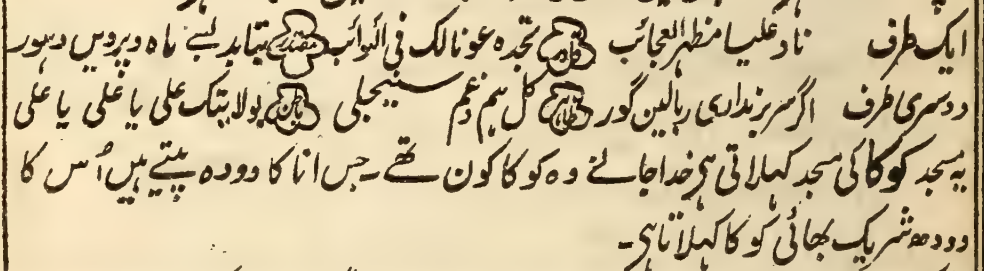 ایک طرف ناد علیا مظہر العجائب قادر تجدہ عونالک فی النوائب مقتدر بتابد بسے ماہ و پرویں و ہور
دوسری طرف اگر سر بزنداری ز بالین گور طاہر کل ہم و غم سینجلی باطن بولایتک علی یا علی یا علی
یہ مسجد کوکا کی مسجد کہلاتی ہی خدا جانے وہ کوکا کون تھے۔ جس انا کا دودہ پیتے ہیں اُس کا
دودھ شریک بھائی کوکا کہلاتا ہی۔